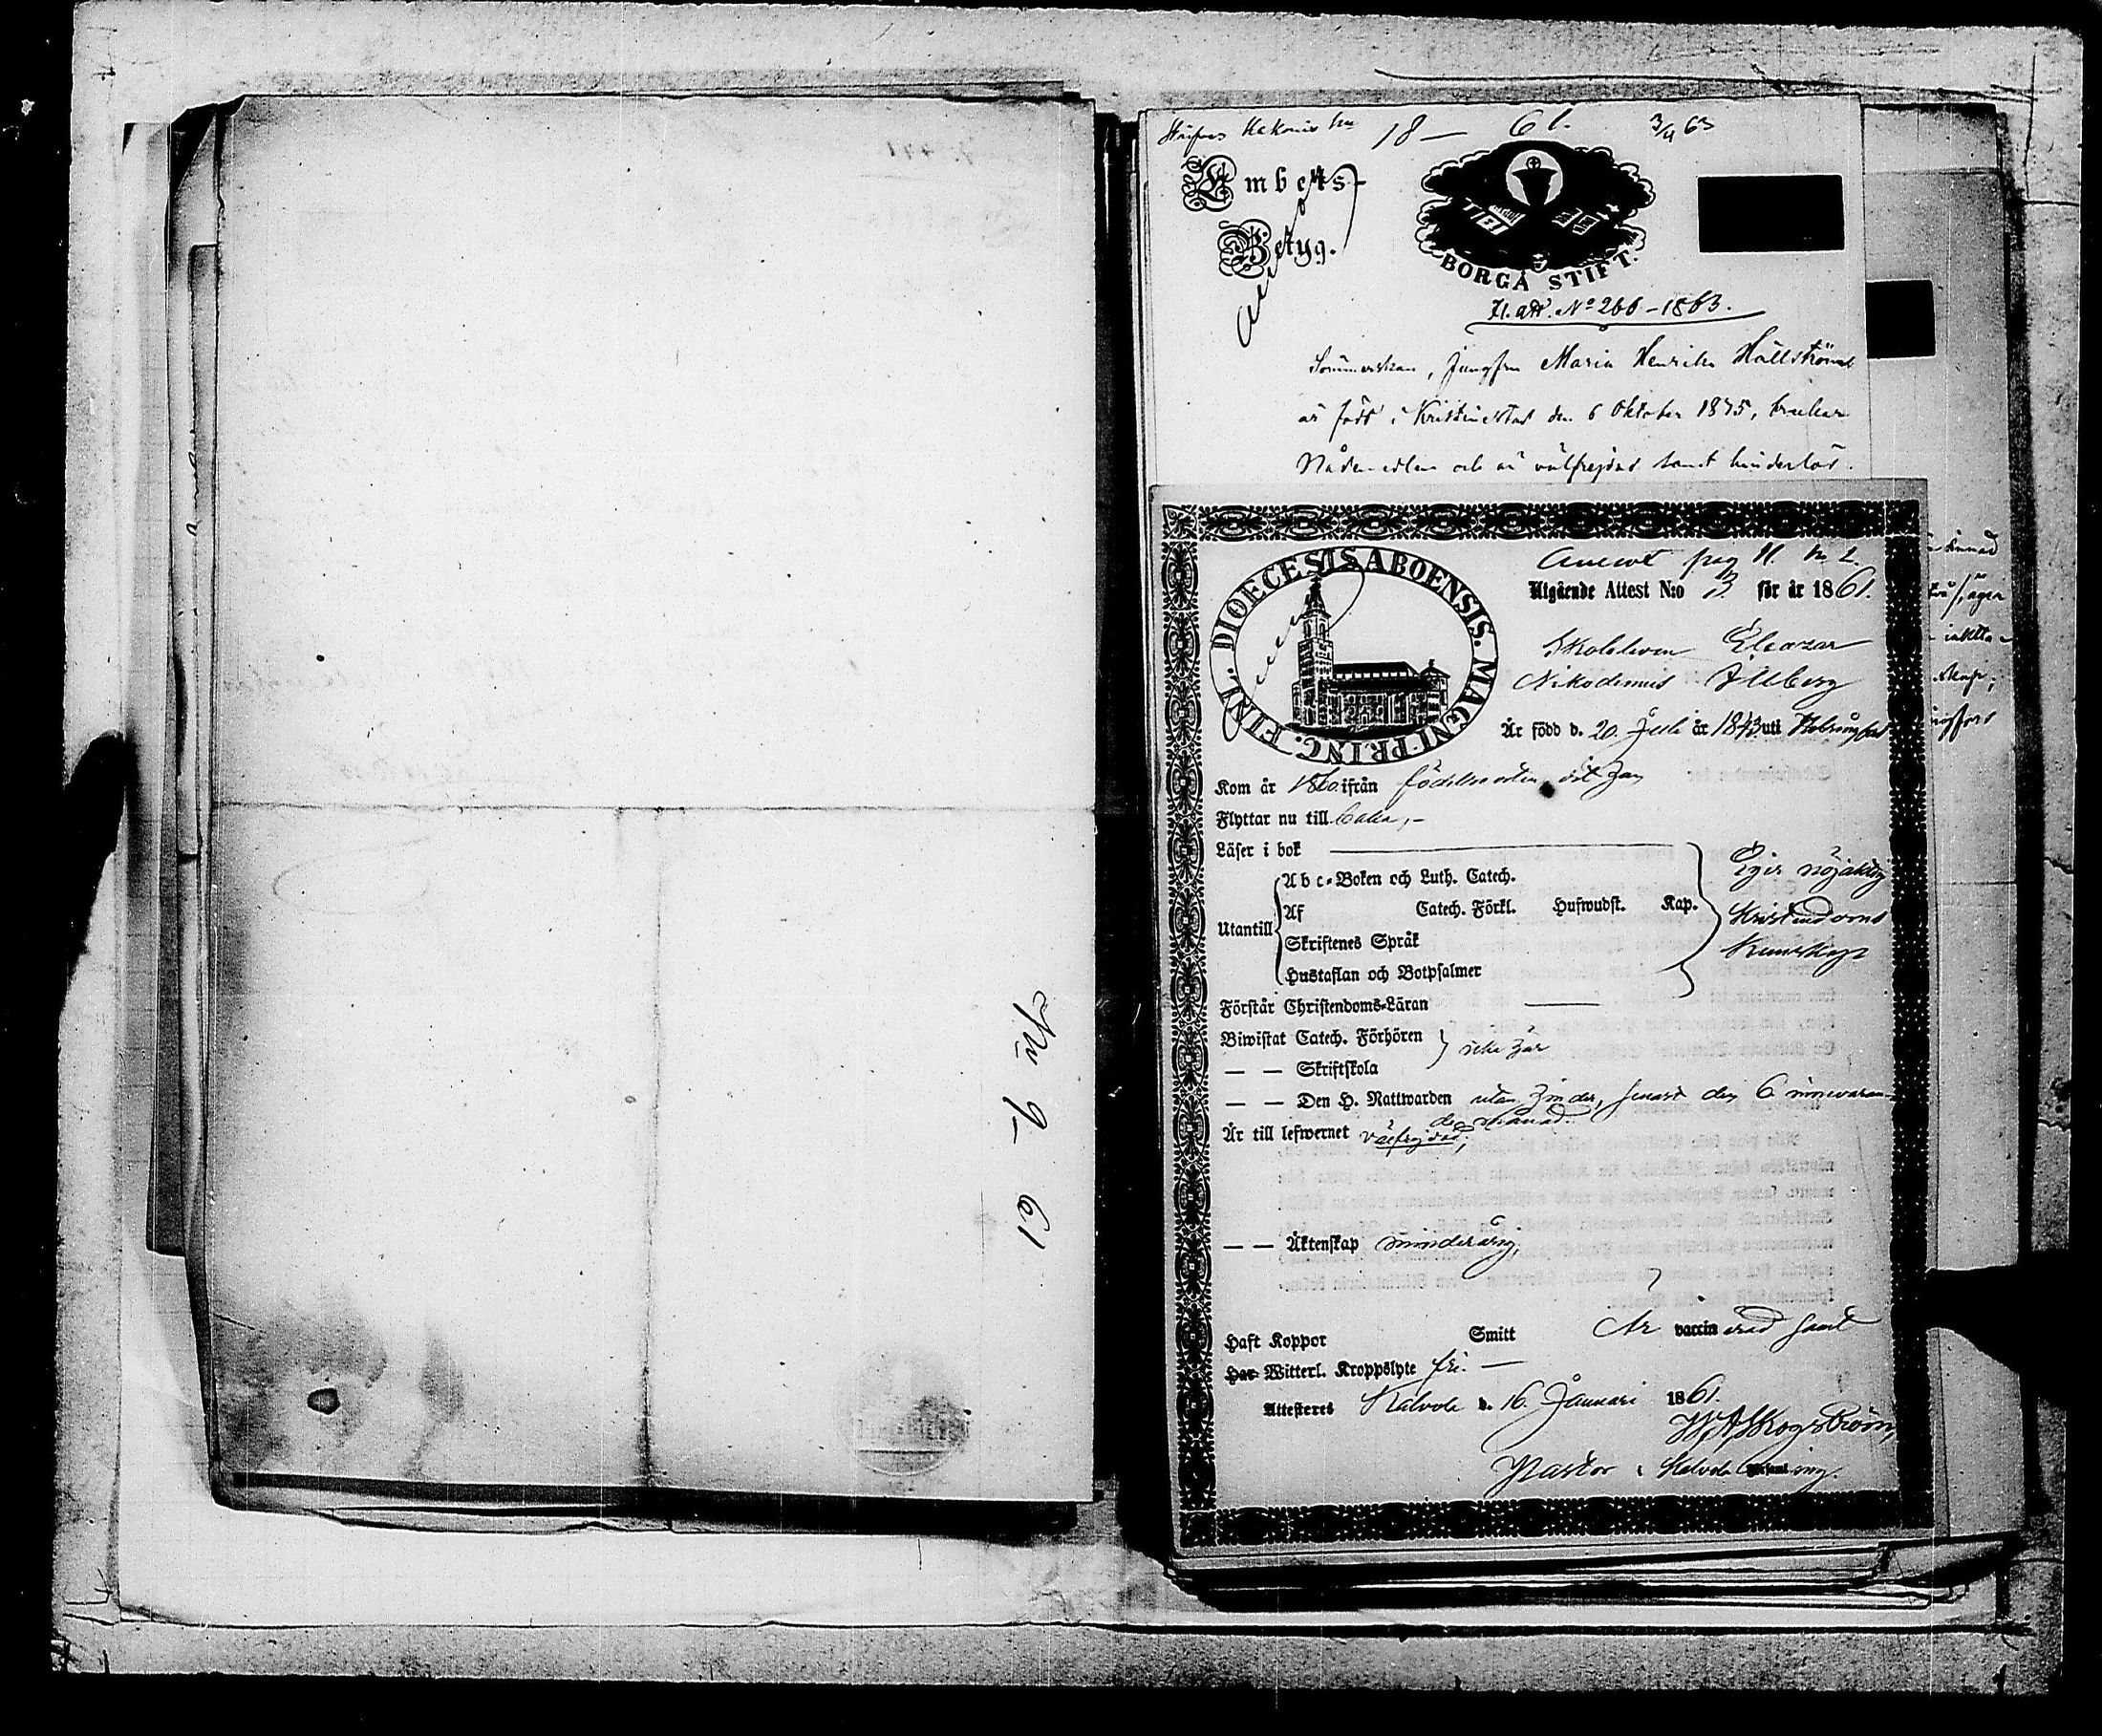 No 9 - 61
18 — 61. 3/4 63
Embets-
Betyg.
BORGÅ STIFT.
Fl. att. No 266 - 1863.
Jungfru Maria Henrika Hällström
är född i Kristinestad den 6 Oktober 1835, brukar
Nådemedlen och är välfrejdad samt hinderlös.
DIOECESIS ABOENSIS. MAGNI PRINC. FINL.
Annot pag 11. No 2.
Utgående Attest N:o 3 för år 1861.
Skoleleven Eleazar
Nikodemus Idberg
Är född d. 20 Juli år 1843 uti Helsingfors
Kom år 1860 ifrån födelseorten, dit han
Flyttar nu till baka,-
Läser i bok
Utantill
A b c-Boken och Luth. Catech.
Af Catech. Förkl. Hufwudst. Kap.
Skriftenes Språk
Hustaflan och Botpsalmer
Eger nöjaktig
Kristendoms
Kunskap
Förstår Christendoms-Läran
Biwistat Catech. Förhören
— — Skriftskola
icke här
— — Den H. Nattwarden utan hinder, senast den 6 innevaran-
de månad.
Är till lefwernet välfrejdad;
— — Äktenskap minderårig,
Haft Koppor Smitt Är vaccinerad samt
Har Witterl. Kroppslyte fri. —
Attesteras Kalvola d. 16 Januari 1861.
W A Skogström
Pastor i Kalvola